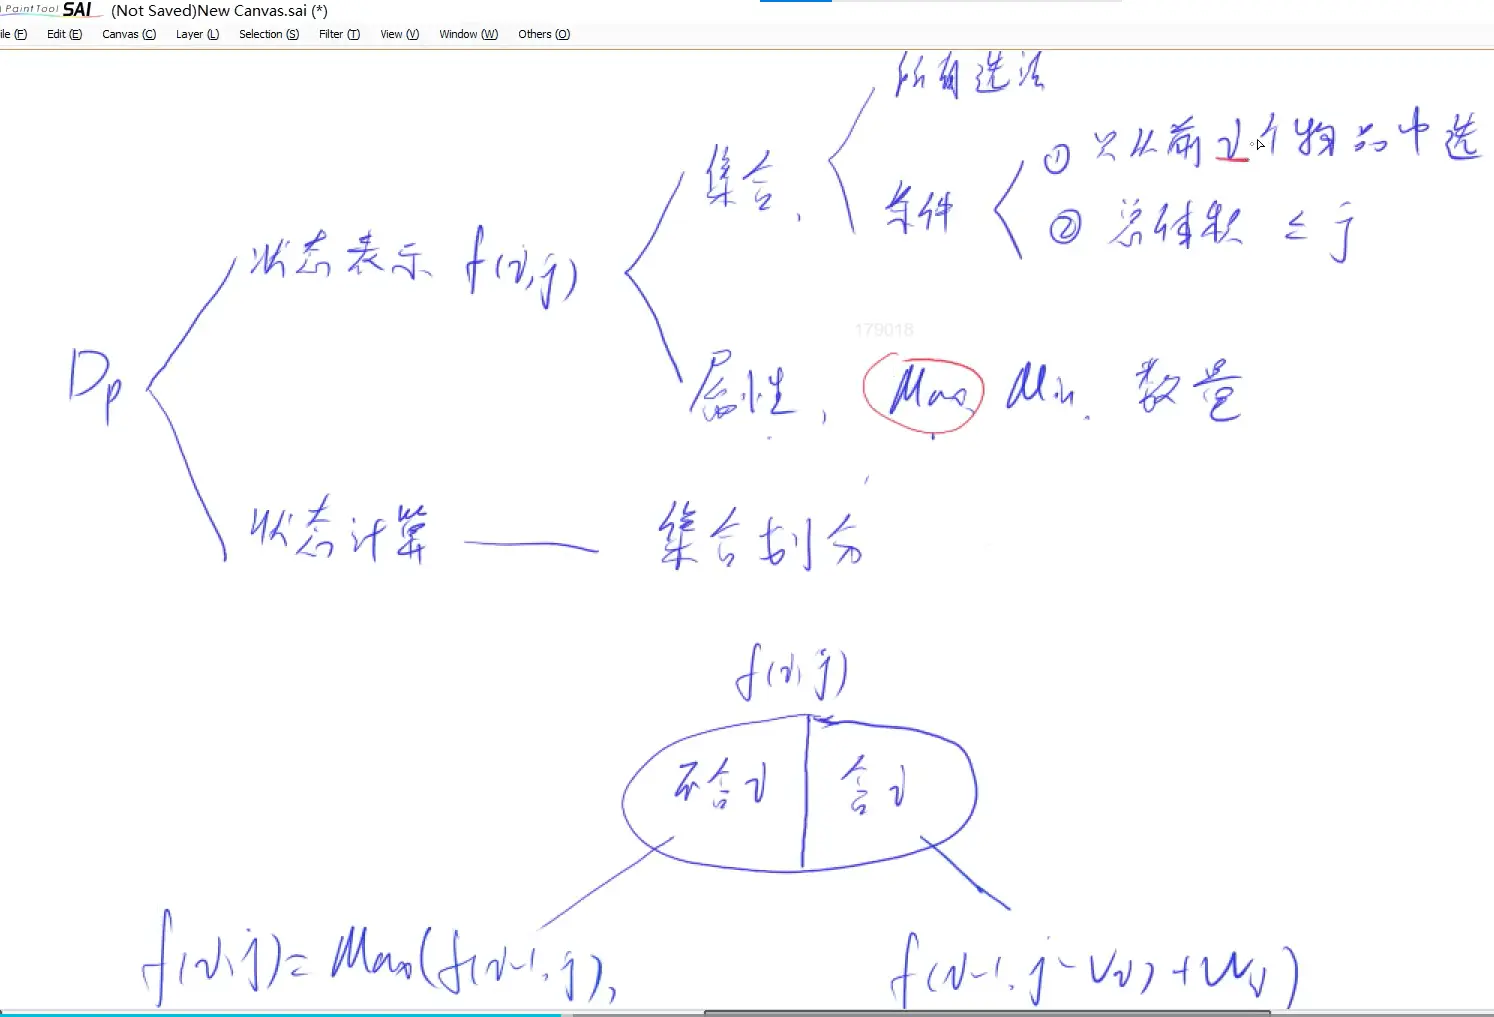 PaintTool SAI (Not Saved)New Canvas.sai (*)
ile (F) Edit (E) Canvas (C) Layer (L) Selection (S) Filter (T) View (V) Window (W) Others (O)
所有选法
① 只从前i个物品中选
集合,
条件
② 总体积 ≤ j
状态表示 f(i,j)
179018
Dp
属性, Max, Min, 数量
状态计算 —— 集合划分
f(i,j)
不含i 含i
f(i,j)= Max(f(i-1,j), f(i-1,j-Vi)+Wi)